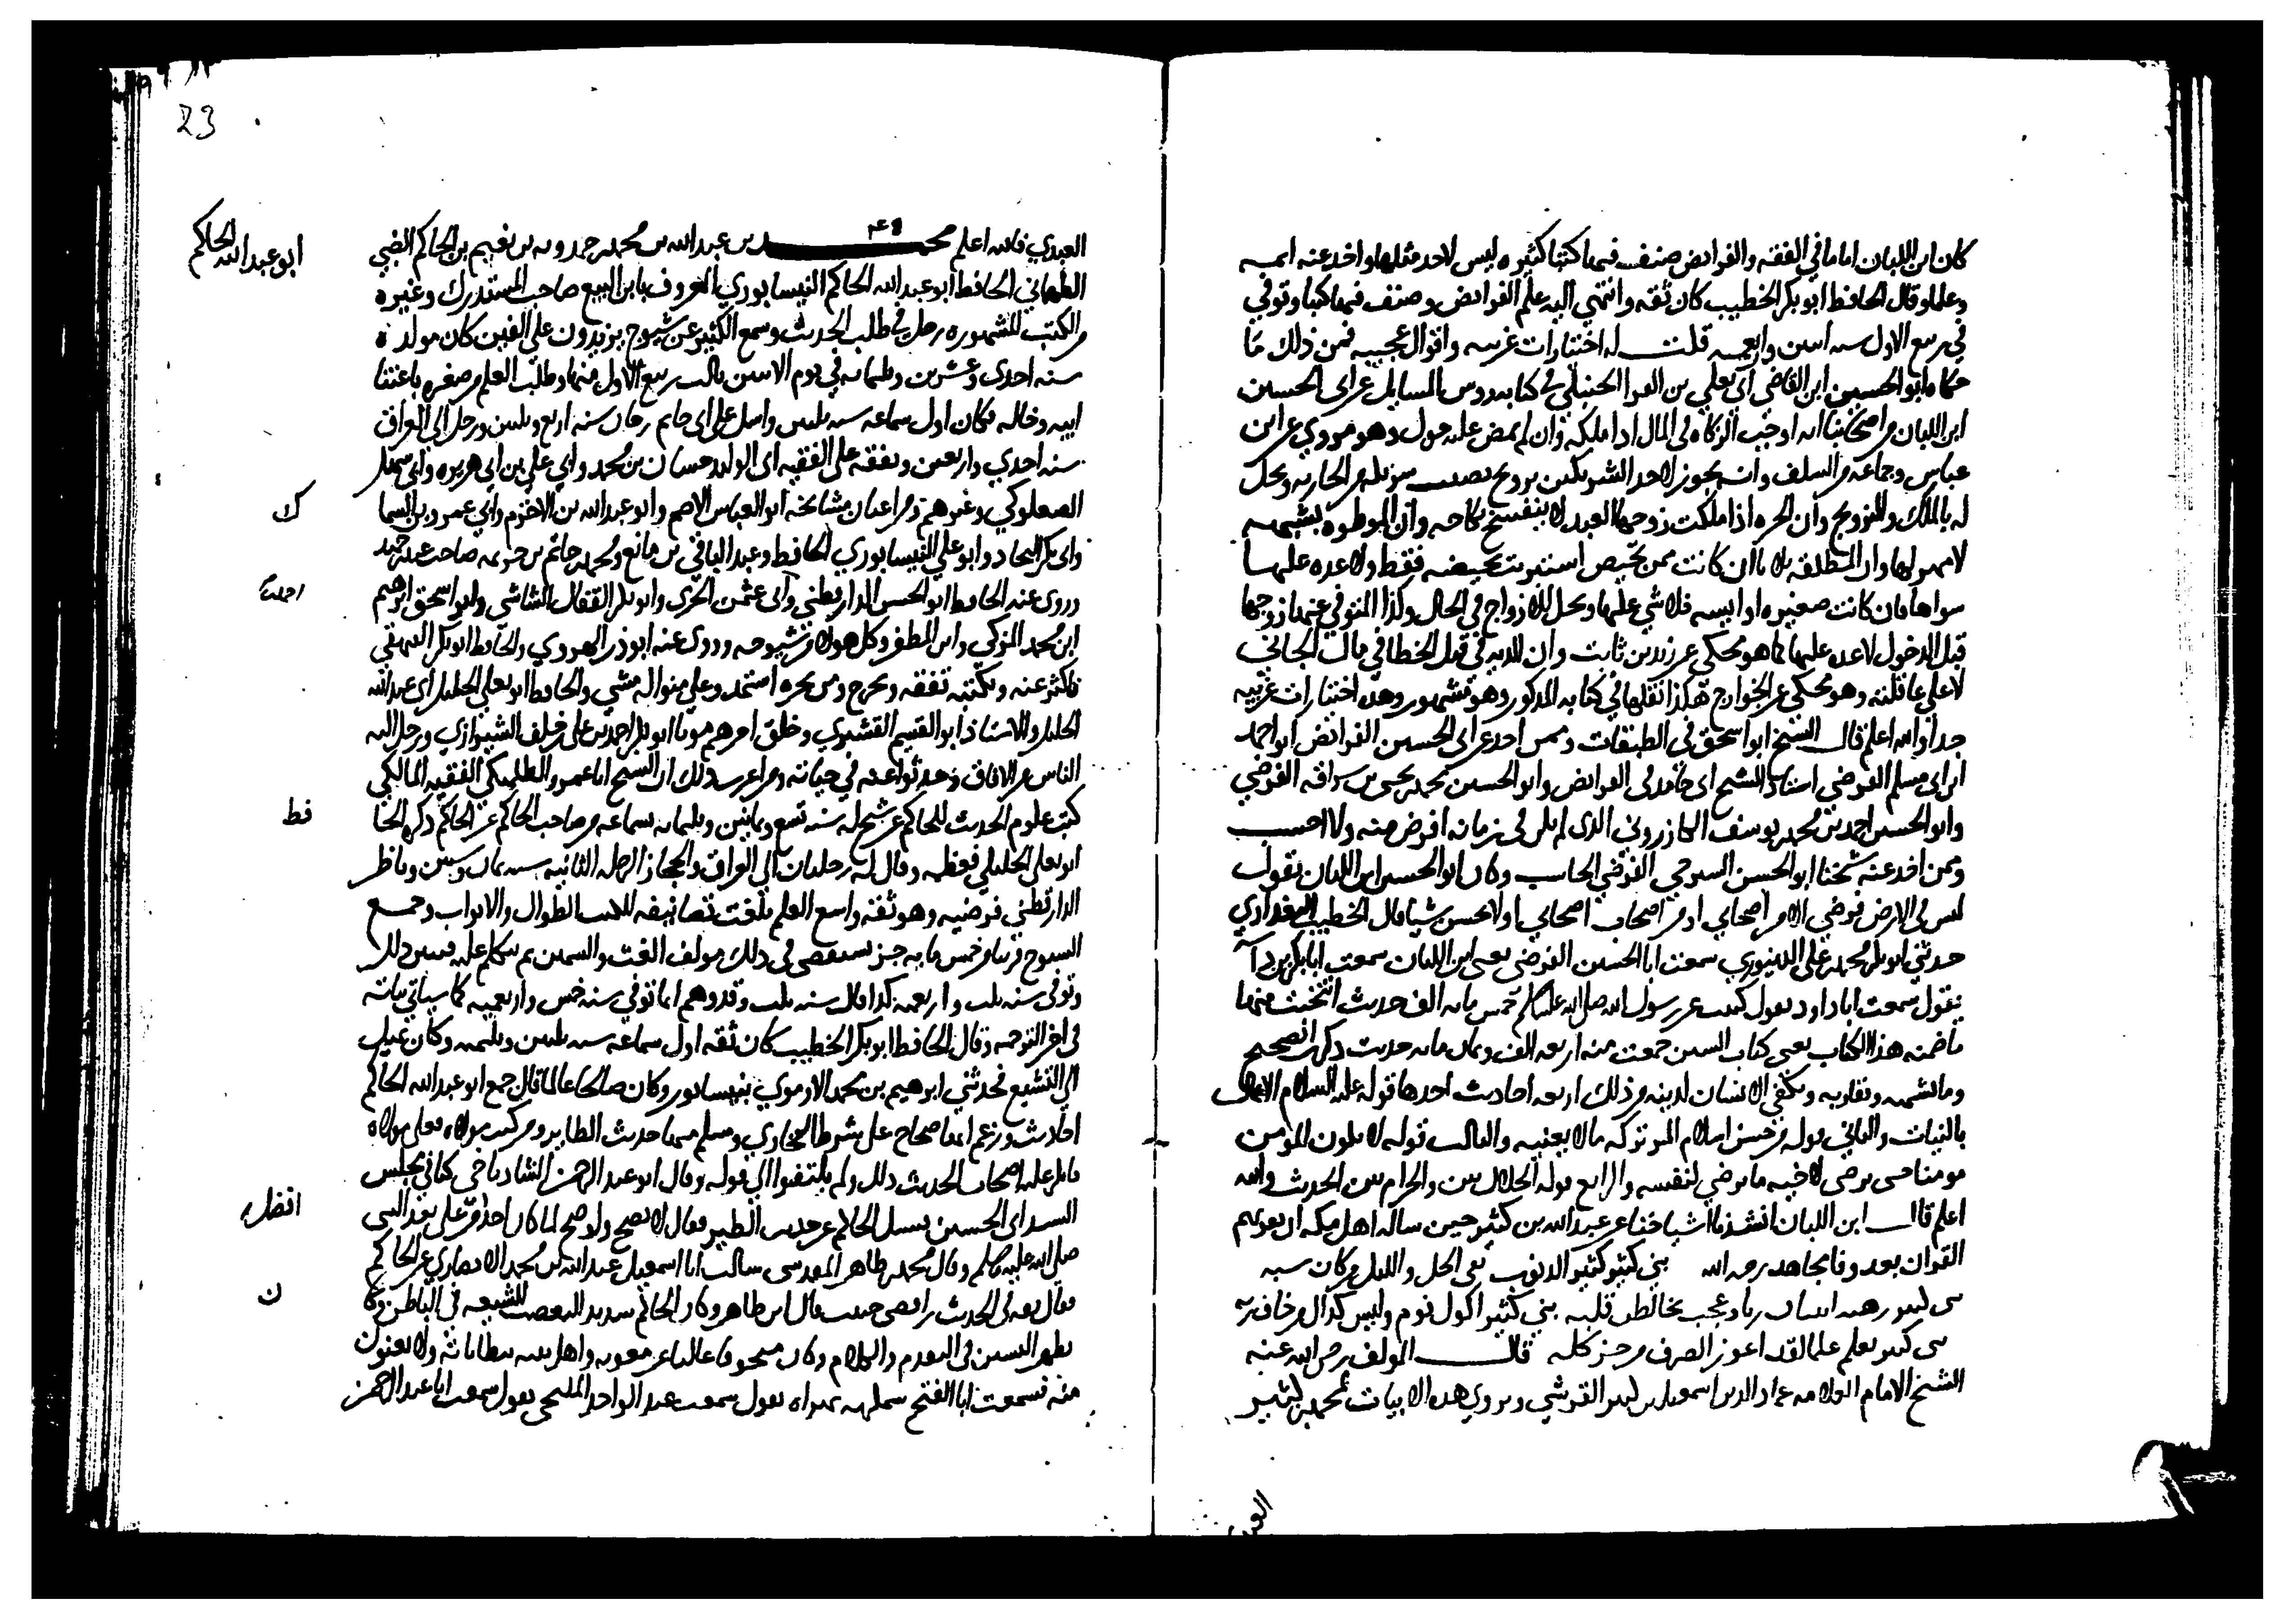 كان ابن اللبان اماما في الفقه والفرائض صنف فيها كتبا كثيرة ليس لاحد مثلها واخذ عنه ائمة
وعلما وقال الحافظ ابو بكر الخطيب كان ثقه وانتهى اليه علم الفرائض وصنف فيها كتبا وتوفي
في ربيع الاول سنه اثنين واربعمايه قلت له اختيارات غريبه واقوال عجيبه فمن ذلك ما
حكاه ابو الحسين ابن القاضي ابي يعلي بن الفرا الحنبلي في كتابه رووس المسايل عن ابي الحسين
ابن اللبان من اصحابنا انه اوجب الزكاه في المال اذا ملكه وان لم يمض عليه حول وهو مروي عن ابن
عباس وجماعة من السلف وانه يجوز لاحد الشريكين تزويج نصيب شريكه من الجاريه ويحل
له بالملك والتزويج وان الحره اذا ملكت زوجها العبد لا ينفسخ نكاحه وان الموطوه بشبهه
لا مهر لها وان المطلقه ثلاثا ان كانت ممن تحيض استبريت بحيضه فقط ولا عده عليها
سواها فان كانت صغيره او ايسه فلا شي عليها وتحل للازواج في الحال وكذا المتوفي عنها زوجها
قبل الدخول لا عده عليها كما هو محكي عن زيد بن ثابت وان الديه في قتل الخطا في مال الجاني
لا على عاقلته وهو محكي عن الخوارج هكذا نقلها في كتابه المذكور وهو مشهور وهذه اختيارات غريبه
جدا والله اعلم قال الشيخ ابو اسحق في الطبقات وممن اخذ عن ابي الحسين الفرائض ابو احمد
ابن ابي مسلم الفرضي استاذ الشيخ ابي حامد في الفرائض وابو الحسين محمد بن يحيى بن سراقه الفرضي
وابو الحسين احمد بن محمد بن يوسف الكازروني الذي لم يكن في زمانه افرض منه ولا احسب
وممن اخذ عنه شيخنا ابو الحسن السيرجي الفرضي الحاسب وكان ابو الحسين ابن اللبان يقول
ليس في الارض فرضي الا من اصحابي او من اصحاب اصحابي او لا يحسن شيا قال الخطيب البغدادي
حدثني ابو بكر محمد بن علي الدينوري سمعت ابا الحسين الفرضي يعني ابن اللبان سمعت ابا بكر بن داسه
يقول سمعت ابا داود يقول كتبت عن رسول الله صلى الله عليه وسلم خمس مايه الف حديث انتخبت منها
ما ضمنته هذا الكتاب يعني كتاب السنن جمعت منه اربعه الف وثمان مايه حديث ذكرت الصحيح
وما يشبهه ويقاربه ويكفي الانسان لدينه من ذلك اربعه احاديث احدها قوله عليه السلام الاعمال
بالنيات والثاني قوله من حسن اسلام المر تركه ما لا يعنيه والثالث قوله لا يكون المؤمن
مومنا حتى يرضى لاخيه ما يرضى لنفسه والرابع قوله الحلال بين والحرام بين الحديث والله
اعلم قال ابن اللبان انشدنا اشياخنا عن عبد الله بن كثير حين ساله اهل مكه ان يقريهم
القران بعد وفا مجاهد رحمه الله بني كثير كثير الذنوب
بني كثير اكول نوم وليس كذاك من خاف ربه
بني كثير يعلم علما لقد اعوز الصوف من جز كلبه قال المولف رضي الله عنه
الشيخ الامام العلامه عماد الدين اسمعيل بن كثير القرشي ويروي هذه الابيات لمحمد بن كثير
العبدي
23
العبدي فالله اعلم محمد بن عبد الله بن محمد بن حمدويه بن نعيم بن الحاكم الضبي
ابو عبد الله الحاكم
الطهماني الحافظ ابو عبد الله الحاكم النيسابوري المعروف بابن البيع صاحب المستدرك وغيره
من الكتب المشهوره رحل في طلب الحديث وسمع الكثير عن شيوخ يزيدون على الفين كان مولده
سنه احدى وعشرين وثلثمايه في يوم الاثنين ثالث ربيع الاول منها وطلب العلم من صغره باعتنا
ابيه وخاله فكان اول سماعه سنه ثلثين واستملى على ابي حاتم بن حبان سنه اربع وثلثين ورحل الى العراق
سنه احدي واربعين وتفقه على الفقيه ابي الوليد حسان بن محمد وابي علي بن ابي هريره وابي سهل
الصعلوكي وغيرهم ومن اعيان مشائخه ابو العباس الاصم وابو عبد الله بن الاخرم وابي عمرو بن السما
ك
وابي بكر النجاد وابو علي النيسابوري الحافظ وعبد الباقي بن قانع ومحمد بن حاتم بن خزيمه صاحب عبد بن حميد
وروى عنه الحافظ ابو الحسن الدارقطني وابو بكر القفال الشاشي وابو اسحق ابراهيم
ابن محمد المزكي وابن المظفر وكل هولاء من شيوخه وروى عنه ابو ذر الهروي والحافظ ابو بكر البيهقي
فاكثر عنه وبكتبه تفقه وتخرج ومن بحره استمد وعلى منواله مشى والحافظ ابو يعلى الخليل بن عبد الله
الخليلي والاستاذ ابو القسم القشيري وخلق اخرهم موتا ابو بكر احمد بن علي بن خلف الشيرازي ورحل اليه
الناس من الافاق وحدثوا عنه في حياته ومن اغرب ذلك ان الشيخ ابا عمر الطلمنكي الفقيه المالكي
كتب علوم الحديث للحاكم عن شيخ له سنه تسع وثمانين وثلثمايه بسماعه من صاحب الحاكم عن الحاكم ذكره الحا
فظ
ابو يعلى الخليلي فعظمه وقال له رحلتان الى العراق والحجاز الرحله الثانيه سنه ثمان وستين وناظر
الدارقطني فرضيه وهو ثقه واسع العلم بلغت تصانيفه للكتب الطوال والابواب وجمع
الشيوخ قريبا من خمس مايه جز
وتوفي سنه ثلث واربعمايه كذا قال سنه ثلث وقد وهم انما توفي سنه خمس واربعمايه كما سياتي بيانه
في اخر الترجمه وقال الحافظ ابو بكر الخطيب كان ثقه اول سماعه سنه ثلثين وثلثمايه وكان يميل
الى التشيع فحدثني ابراهيم بن محمد الارموي بنيسابور وكان صالحا عالما قال جمع ابو عبد الله الحاكم
احاديث وزعم انها صحاح على شرط البخاري ومسلم منها حديث الطاير ومن كنت مولاه فعلي مولاه
فانكر عليه اصحاب الحديث ذلك ولم يلتفتوا الى قوله وقال ابو عبد الرحمن الشاذياخي كنا في مجلس
السيد ابي الحسين فسئل الحاكم عن حديث الطير فقال لا يصح ولو صح لما كان احد افضل من علي بعد النبي
صلى الله عليه وسلم وقال محمد بن طاهر المقدسي سالت ابا اسمعيل عبد الله بن محمد الانصاري عن الحاكم
فقال ثقه في الحديث رافضي خبيث قال ابن طاهر وكان الحاكم شديد التعصب للشيعه في الباطن وكا
ن
يظهر التسنن في التقديم والخلافه وكان منحرفا غاليا عن معويه واهل بيته يتظاهر به ولا يعتذر
منه فسمعت ابا الفتح بهراه يقول سمعت عبد الواحد المليحي يقول سمعت ابا عبد الرحمن